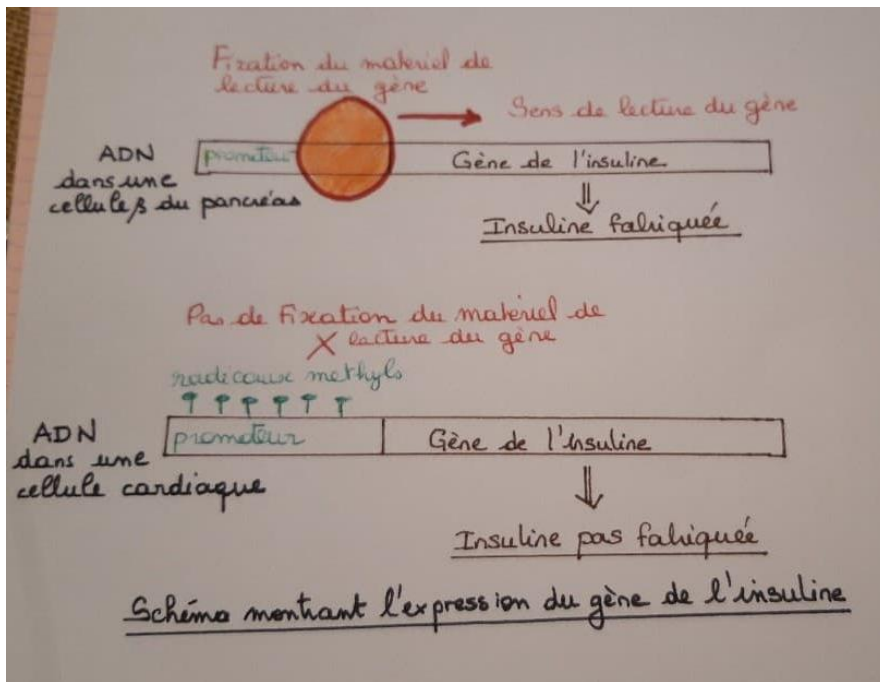 Fixation du matériel de
lecture du gène
Sens de lecture du gène
ADN
dans une
cellule β du pancréas
promoteur
Gène de l'insuline
Insuline fabriquée
Pas de Fixation du matériel de
lecture du gène
radicaux methyls
ADN
dans une
cellule cardiaque
promoteur
Gène de l'insuline
Insuline pas fabriquée
Schéma montrant l'expression du gène de l'insuline